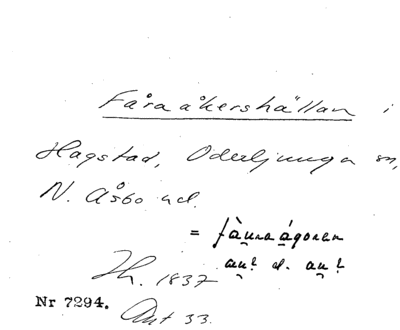 Fåraåkershällan i
Hagstad, Oderljunga sn,
N. Åsbo hd.
= fàu̬raágoren
au̬? el. au̬?
Th. 1837
Nr 7294. Ant 33.